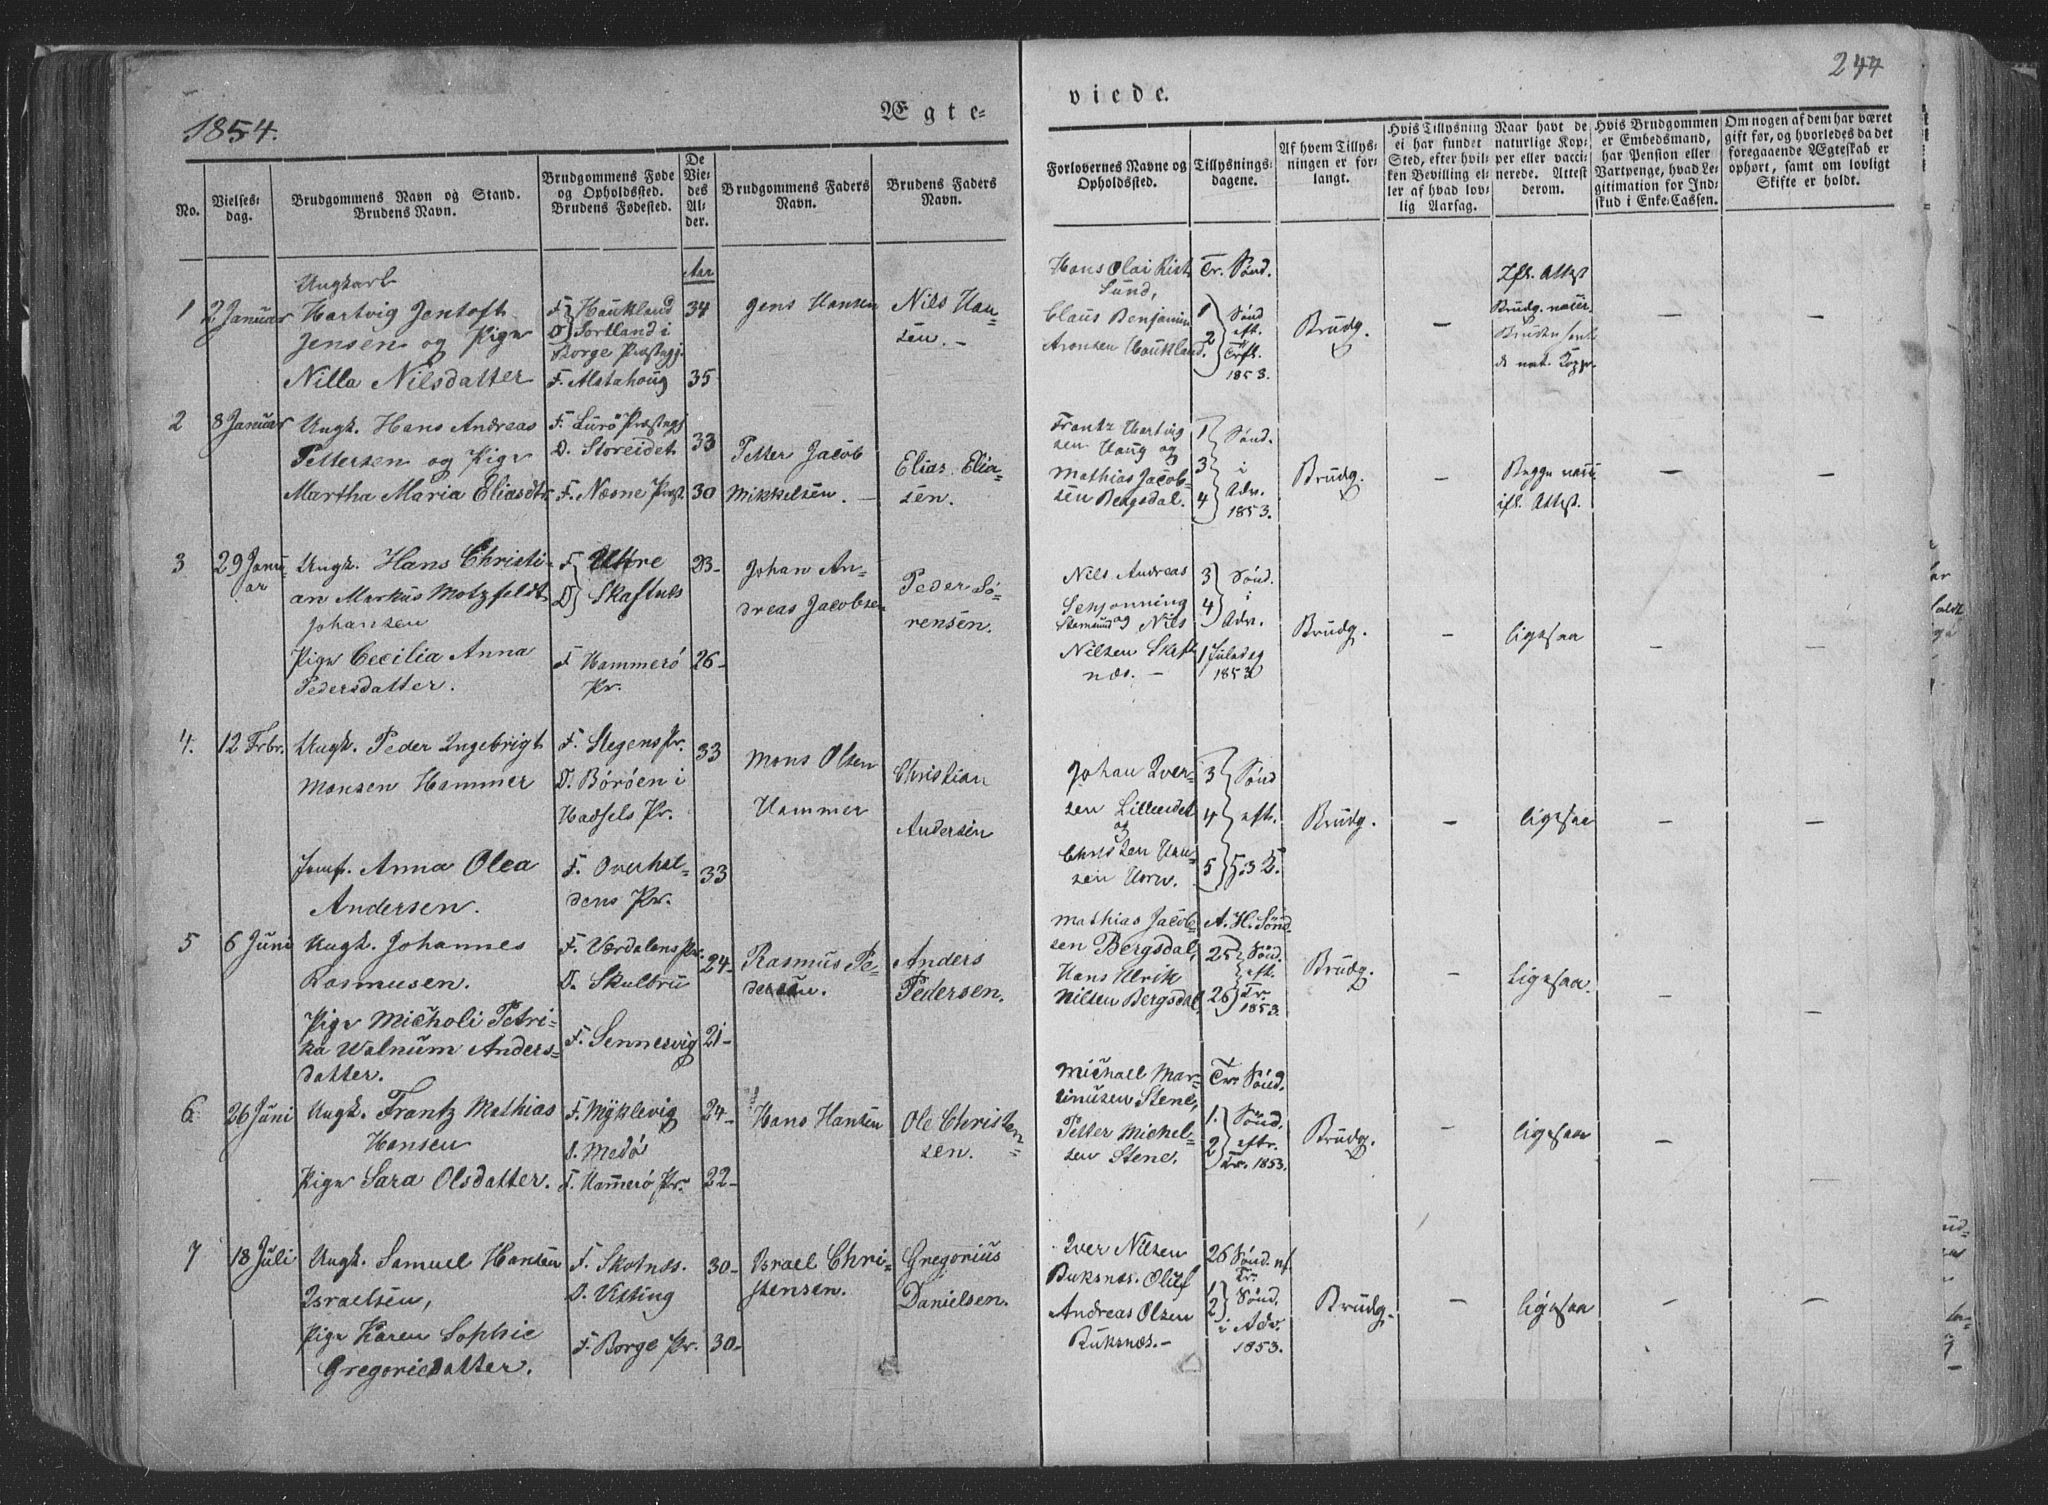 244
1854.
Ægte-
viede.
No.
Vielses-
dag.
Brudgommens Navn og Stand.
Brudens Navn.
Brudgommens Føde
og Opholdssted.
Brudens Fødested.
De
Vie-
des
Al-
der.
Brudgommens Faders
Navn.
Brudens Faders
Navn.
Forlovernes Navne og
Opholdssted.
Tillysnings-
dagene.
Af hvem Tillys-
ningen er for-
langt.
Hvis Tillysning
ei har fundet
Sted, efter hvil-
ken Bevilling el-
ler af hvad lov-
lig Aarsag.
Naar havt de
naturlige Kop-
per eller vacci-
nerede. Attest
derom.
Hvis Brudgommen
er Embedsmand,
har Pension eller
Vartpenge, hvad Le-
gitimation for Ind-
skud i Enke-Cassen.
Om nogen af dem har været
gift før, og hvorledes da det
foregaaende Ægteskab er
ophørt, samt om lovligt
Skifte er holdt.
1
2 Januar
Ungkarl
Hartvig Jentoft
Jensen og Pige
Nilla Nilsdatter
F. Haukland
D. Sortland i
Borge Præstegj.
F. Alstahoug
Aar
34
35
Jens Hansen
Nils Han-
sen. -
Hans Olai Rist
Sund,
Claus Benjamin
Aronsen Haukland.
Tr. Sönd.
1
2
Sönd
eft.
Trft.
1853.
Brudg.
-
Ifl. Attest
Brudg. vacci.
Bruden havt
de nat. Kopp.
-
-
2
8 Januar
Ungk. Hans Andreas
Pettersen og Pige
Martha Maria Eliasdtr
F. Lurö Præstegj
D. Storeidet
F. Næsne Præst.
33
30
Petter Jacob
Mikkelsen. -
Elias Elia-
sen.
Frantz Hartvig
sen Haug og
Mathias Jacob-
sen Bergsdal.
1
3
4
Sönd.
i
Adv.
1853.
Brudg.
-
Begge vacci
ifl. Attest.
-
-
3
29 Janu-
ar
Ungk. Hans Christi-
an Markus Motzfeldt
Johansen
Pige Cecilia Anna
Pedersdatter.
F. Uttre
D. Skaftnes
F. Hammerö
Pr.
23-
26-
Johan An-
dreas Jacobsen
Peder Sö-
rensen.
Nils Andreas
Schjönning
Stamsund og Nils
Nilsen Skaft
næs. -
3
4
Sönd.
i
Adv.
1 Juledag
1853
Brudg.
-
ligesaa
-
-
4.
12 Febr.
Ungk. Peder Ingebrigt
Monsen Hammer
Jomf. Anna Olea
Andersen.
F. Stegens Pr.
D. Böröen i
Hadsels Pr.
F. Overhal-
dens Pr.
33
33
Mons Olsen
Hammer
Christian
Andersen
Johan Iver-
sen Lilleeidet
og
Christen Han-
sen Horn.
3
4
5
Sönd
eft.
Brudg.
-
ligesaa
-
-
5
6 Juni
Ungk. Johannes
Rasmusen.
Pige Micholi Petri-
ka Walnum Anders-
datter.
F. Værdalens Pr.
D. Skulbru
F. Sennesvig
24-
21-
Rasmus Pe-
dersen.
Anders
Pedersen.
Mathias Jacob-
sen Bergsdal,
Hans Ulrik
Nilsen Bergsdal,
A. H. Sönd.
25
26
Sönd.
eft.
Tr.
1853.
Brudg.
-
ligesaa.
-
-
6
26 Juni
Ungk. Frantz Mathias
Hansen
Pige Sara Olsdatter.
F. Myklevig
D. Medö
F. Hammerö Pr.
24-
22-
Hans Hansen
Ole Christen-
sen.
Michael Mar-
tinusen Stene,
Petter Michel-
sen Stene.
Tr. Sönd.
1.
2
Sönd.
eftr.
Tr. 1853.
Brudg.
-
ligesaa
-
-
7
18 Juli
Ungk. Samuel Hansen
Israelsen,
Pige Karen Sophie
Gregoriedatter.
F. Skotnæs.
D. Vetting
F. Borge Pr.
30-
30-
Israel Chri-
stensen.
Gregorius
Danielsen.
Iver Nilsen
Buksnæs. Oluf
Andreas Olsen
Buksnæs. -
26 Sönd. ef.
Tr.
1
2
Sönd.
i Adv.
1853.
Brudg.
-
ligesaa
-
-